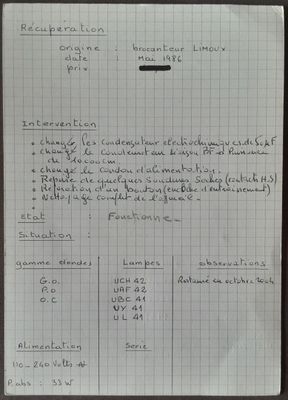 Récupération
origine : brocanteur LIMOUX
date : Mai 1986
prix
Intervention
changé les condensateur electrochimique
changé le condensateur liaison BF
de 10.000cm
changé le cordon d'alimentation.
Reprise de quelques soudures Sèches (contacts H.S)
Réfection d'un bouton (entraînement)
Nettoyage complet de l'
etat : Fonctionne_
Situation :
gamme d'ondes Lampes observations
G.O. UCH 42 Restauré en octobre 2004
P.O UAF 42
O.C UBC 41
UY 41
UL 41
Alimentation Serie
110-240 Volts
P.abs : 33W